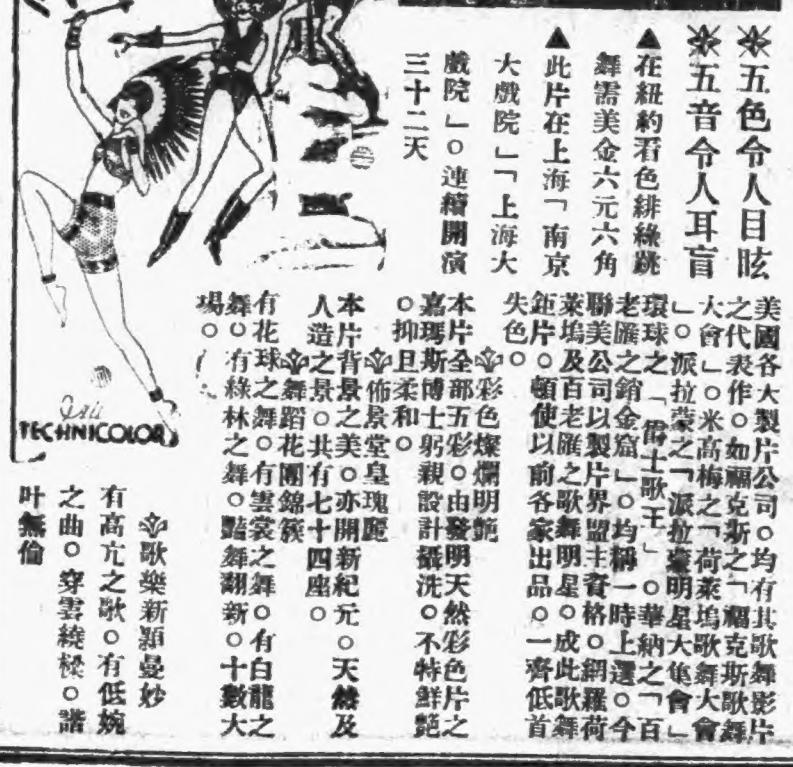 ※五色令人目眩
※五音令人耳盲
▲在紐約看色緋綠跳
舞需美金六元六角
▲此片在上海「南京
大戲院」「上海大
戲院」。連續開演
三十二天
美國各大製片公司。均有其歌舞影片
之代表作。如福克斯之「福克斯歌舞
大會」。米高梅之「荷萊塢歌舞大會
」。派拉蒙之「派拉蒙明星大集會」
環球之「爵士歌王」。華納之「百
老匯之銷金窟」。均稱一時上選。今
聯美公司以製片界盟主資格。網羅荷
萊塢及百老匯之歌舞明星。成此歌舞
鉅片。頓使以前各家出品。一齊低首
失色。
彩色燦爛明艷
本片全部五彩。由發明天然彩色片之
嘉瑪斯博士躬親設計攝洗。不特鮮艷
。抑且柔和。
佈景堂皇瑰麗
本片背景之美。亦開新紀元。天然及
人造之景。共有七十四座。
舞蹈花團錦簇
有花球之舞。有雲裳之舞。有白龍之
舞。有綠林之舞。豔舞翻新。十數大
場。
歌樂新穎曼妙
有高亢之歌。有低婉
之曲。穿雲繞樑。諧
叶無倫
In TECHNICOLOR